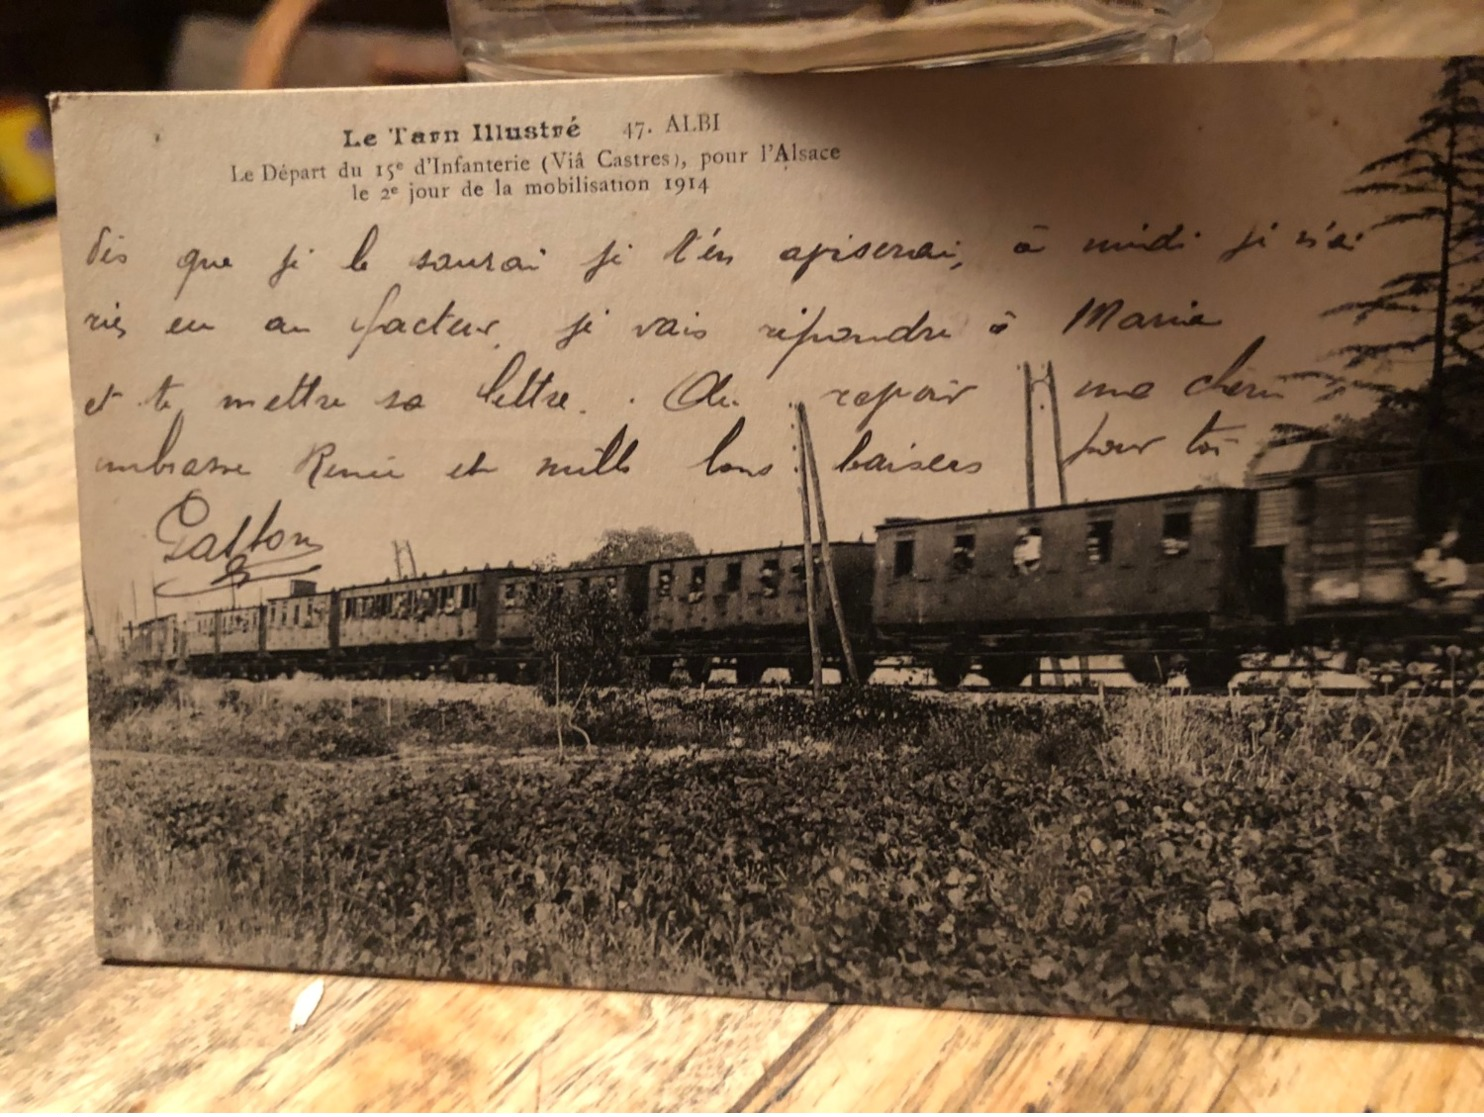 Le Tarn Illustré 47. ALBI
Le Départ du 15e d'Infanterie (Viâ Castres), pour l'Alsace
le 2e jour de la mobilisation 1914
dès que je le saurai je t'en aviserai, à midi je n'ai
rien eu au facteur, je vais répondre à Marie
et te mettre sa lettre. Au revoir ma chérie
embrasse Renée et mille bons baisers pour toi
Gaston